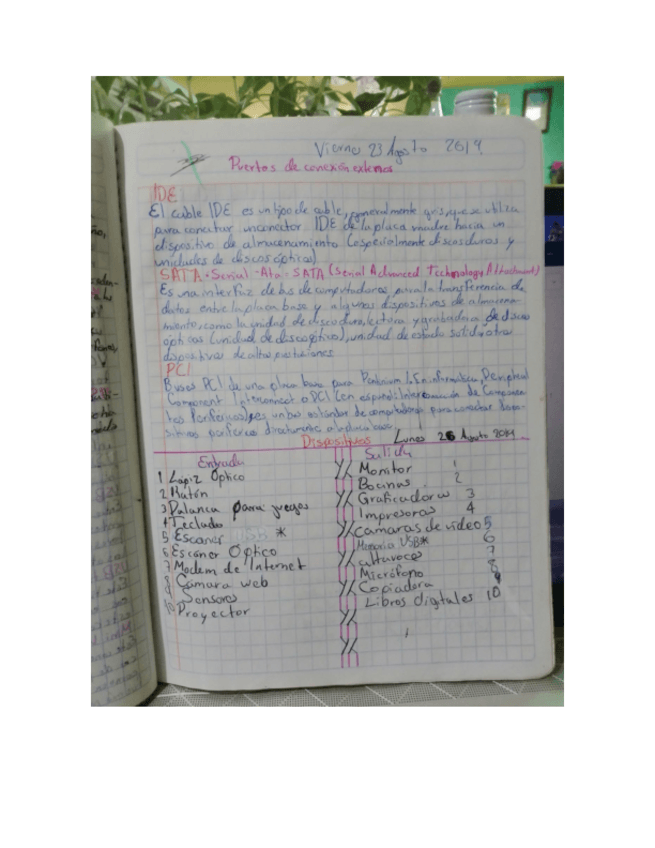 Viernes 23 Agosto 2019
Puertos de conexión externos
IDE
El cable IDE es un tipo de cable, generalmente gris, que se utiliza
para conectar un conector IDE de la placa madre hacia un
dispositivo de almacenamiento (especialmente discos duros y
unidades de discos ópticos)
SATA - Serial - Ata: SATA (Serial Advanced Technology Attachment)
Es una interfaz de bus de computadoras para la transferencia de
datos entre la placa base y algunos dispositivos de almacena-
miento, como la unidad de disco duro, lectora y grabadora de disco
ópticos (unidad de disco óptico), unidad de estado solido, otra
dispositivos de altas prestaciones
PCI
Buses PCI de una placa base para Pentium I. En informática, Peripheral
Component Interconnect o PCI (en español: Interconexión de Componen-
tes Periféricos), es un bus estándar de computadoras para conectar dispo-
sitivos periféricos directamente a la placa base
Dispositivos Lunes 26 Agosto 2019
Entrada
1 Lapiz Óptico
2 Ratón
3 Palanca para juegos
4 Teclado
5 Escaner *
6 Escáner Óptico
7 Modem de Internet
8 Cámara web
Sensores
10 Proyector
Salida
Monitor 1
Bocinas 2
Graficadoras 3
Impresoras 4
Camaras de video 5
Memoria USB* 6
altavoces 7
Micrófono 8
Copiadora 9
Libros digitales 10